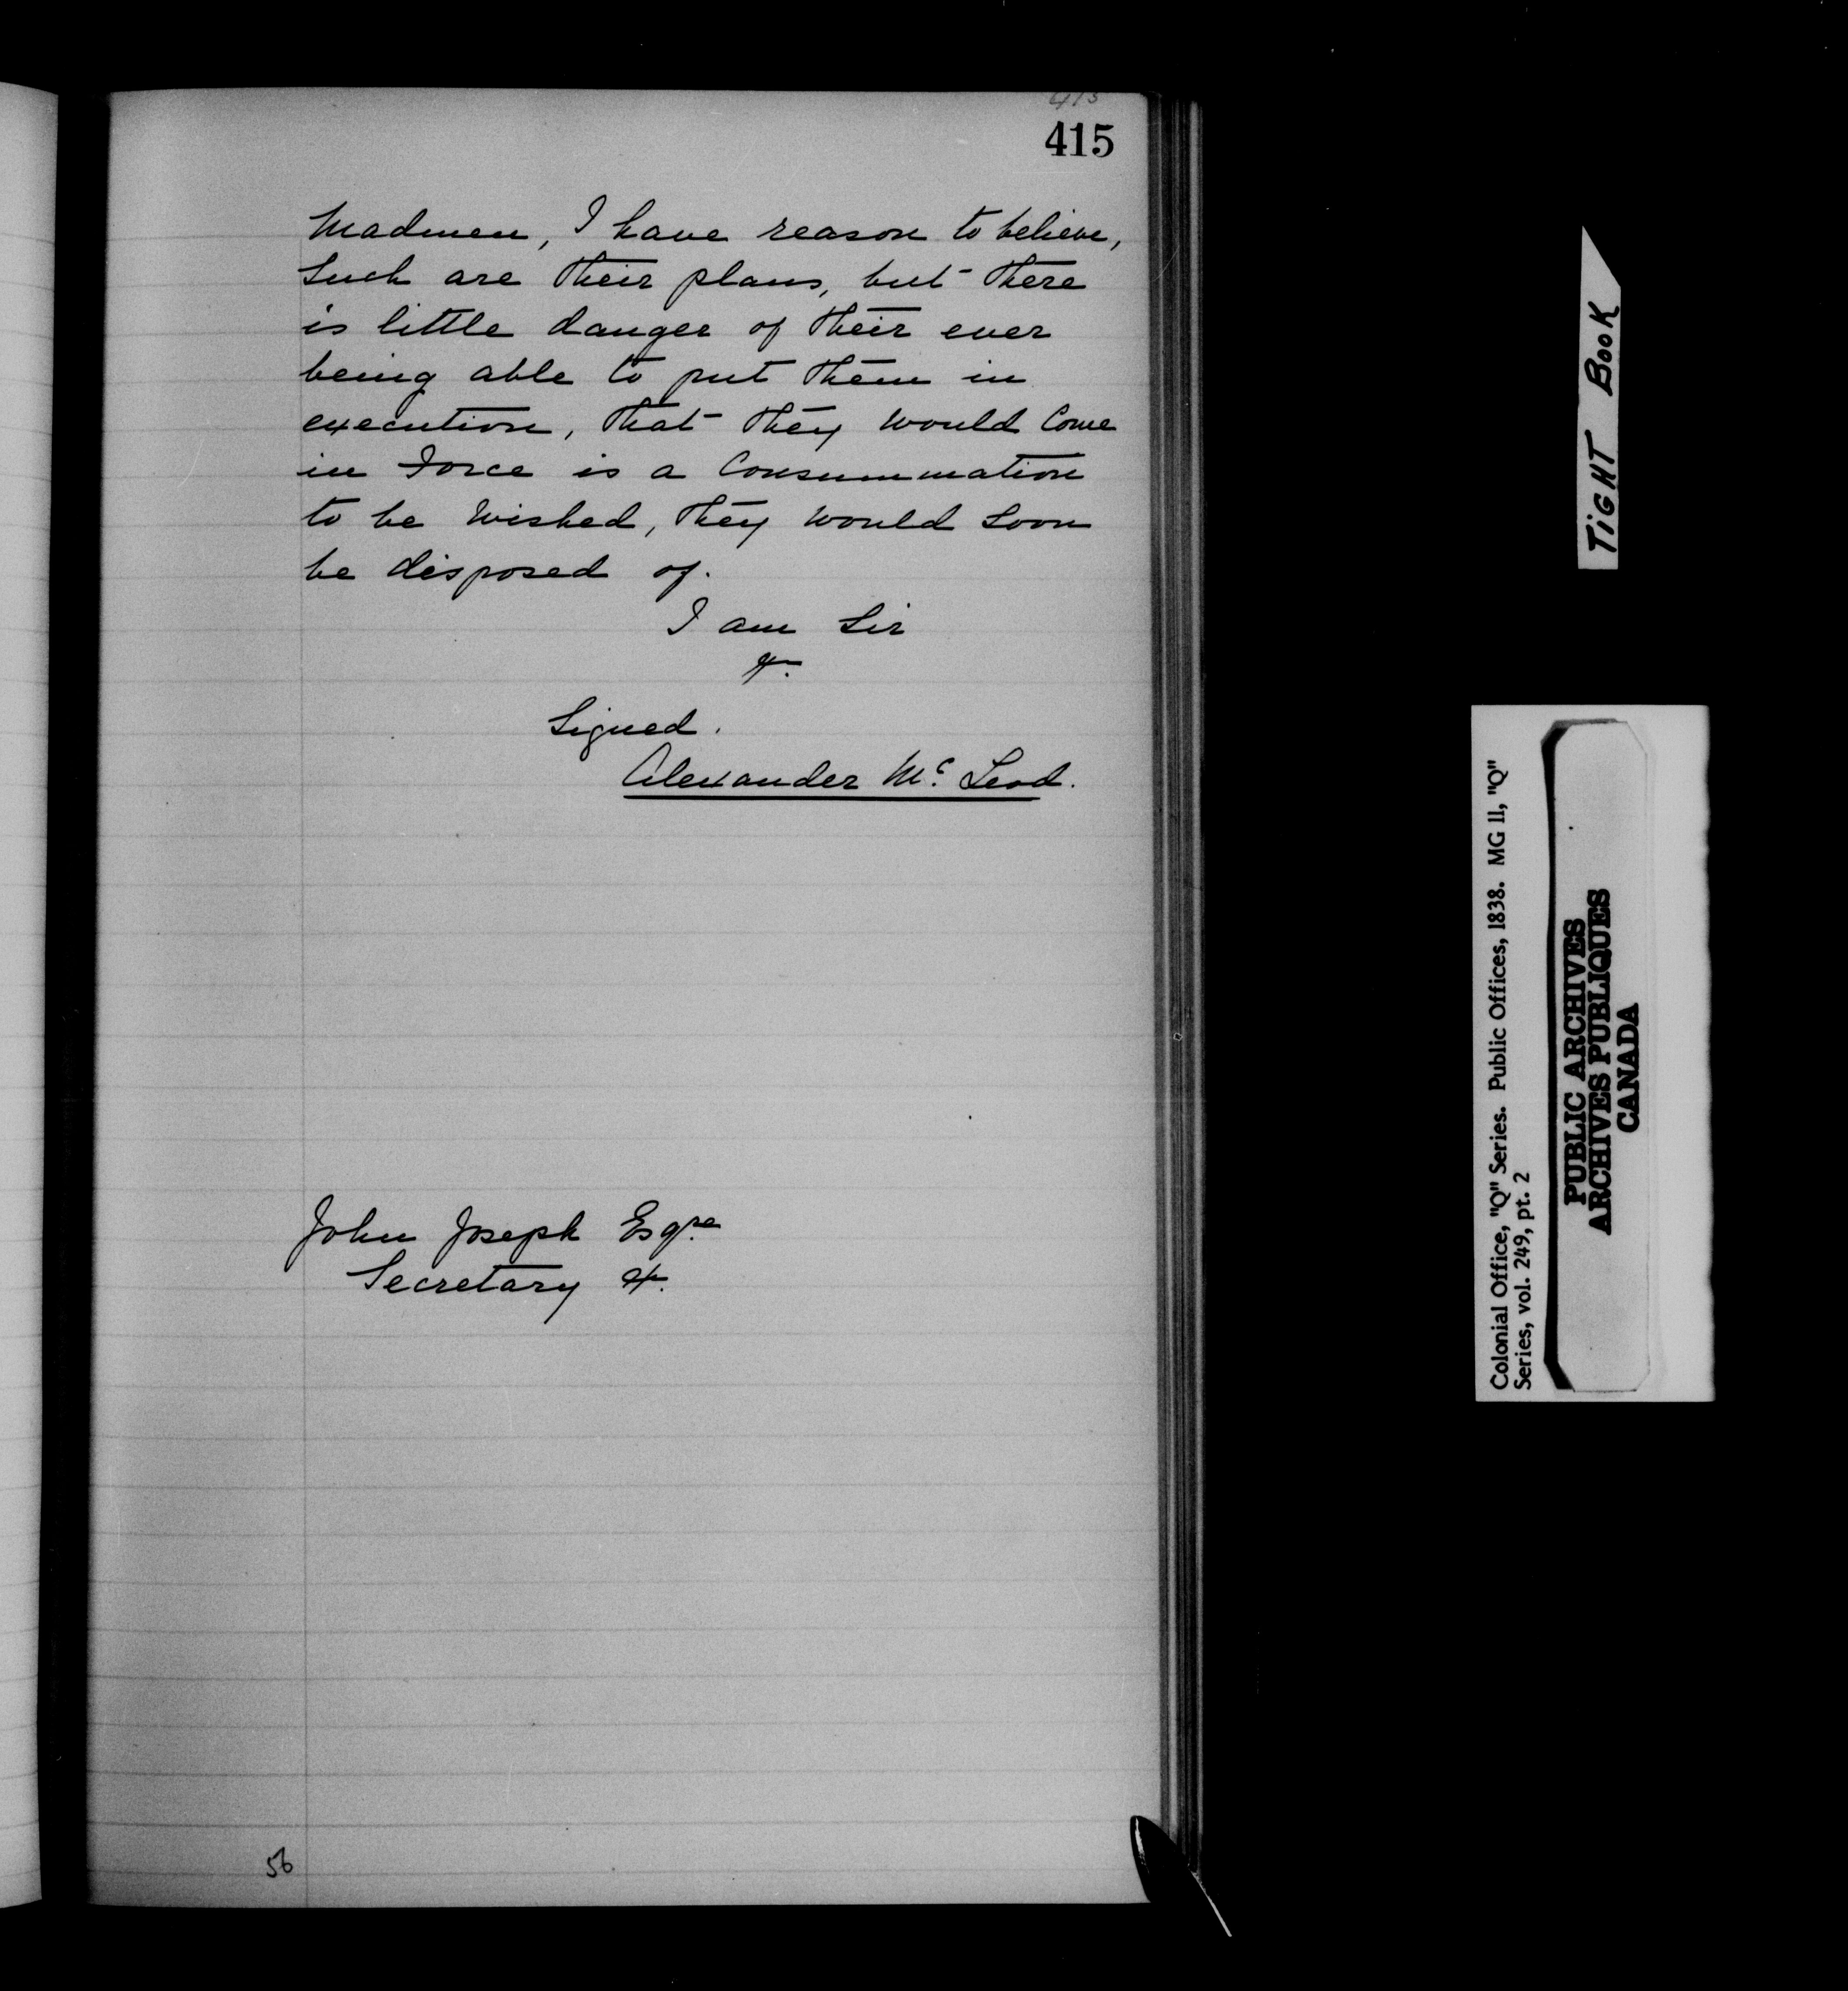 415
415
Madmen, I have reason to believe,
Such are their plans, but there
is little danger of their ever
being able to put them in
execution, that they would Come
in Force is a Consummation
to be Wished, they would soon
be disposed of.
I am Sir
&c.
Signed.
Alexander Mc. Leod.
John Joseph Esqre
Secretary &c.
56
TIGHT BOOK
Colonial Office, "Q" Series. Public Offices, 1838. MG 11, "Q"
Series, vol. 249, pt. 2
PUBLIC ARCHIVES
ARCHIVES PUBLIQUES
CANADA